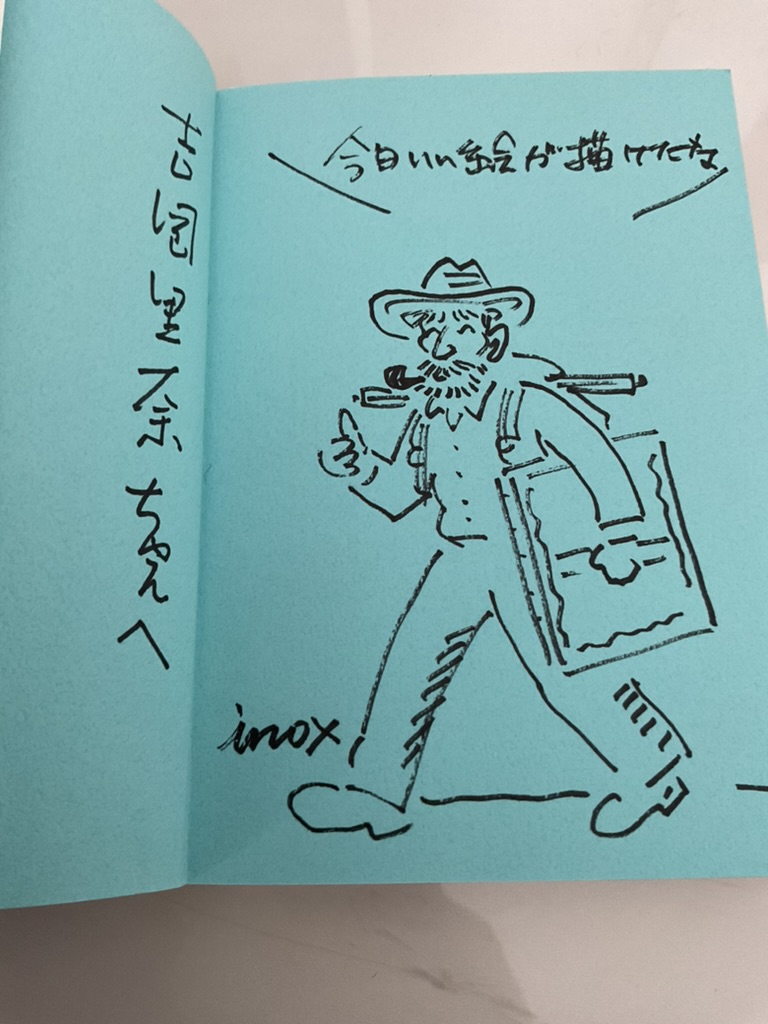 今日いい絵が描けたな
吉岡里奈ちゃんへ
inox